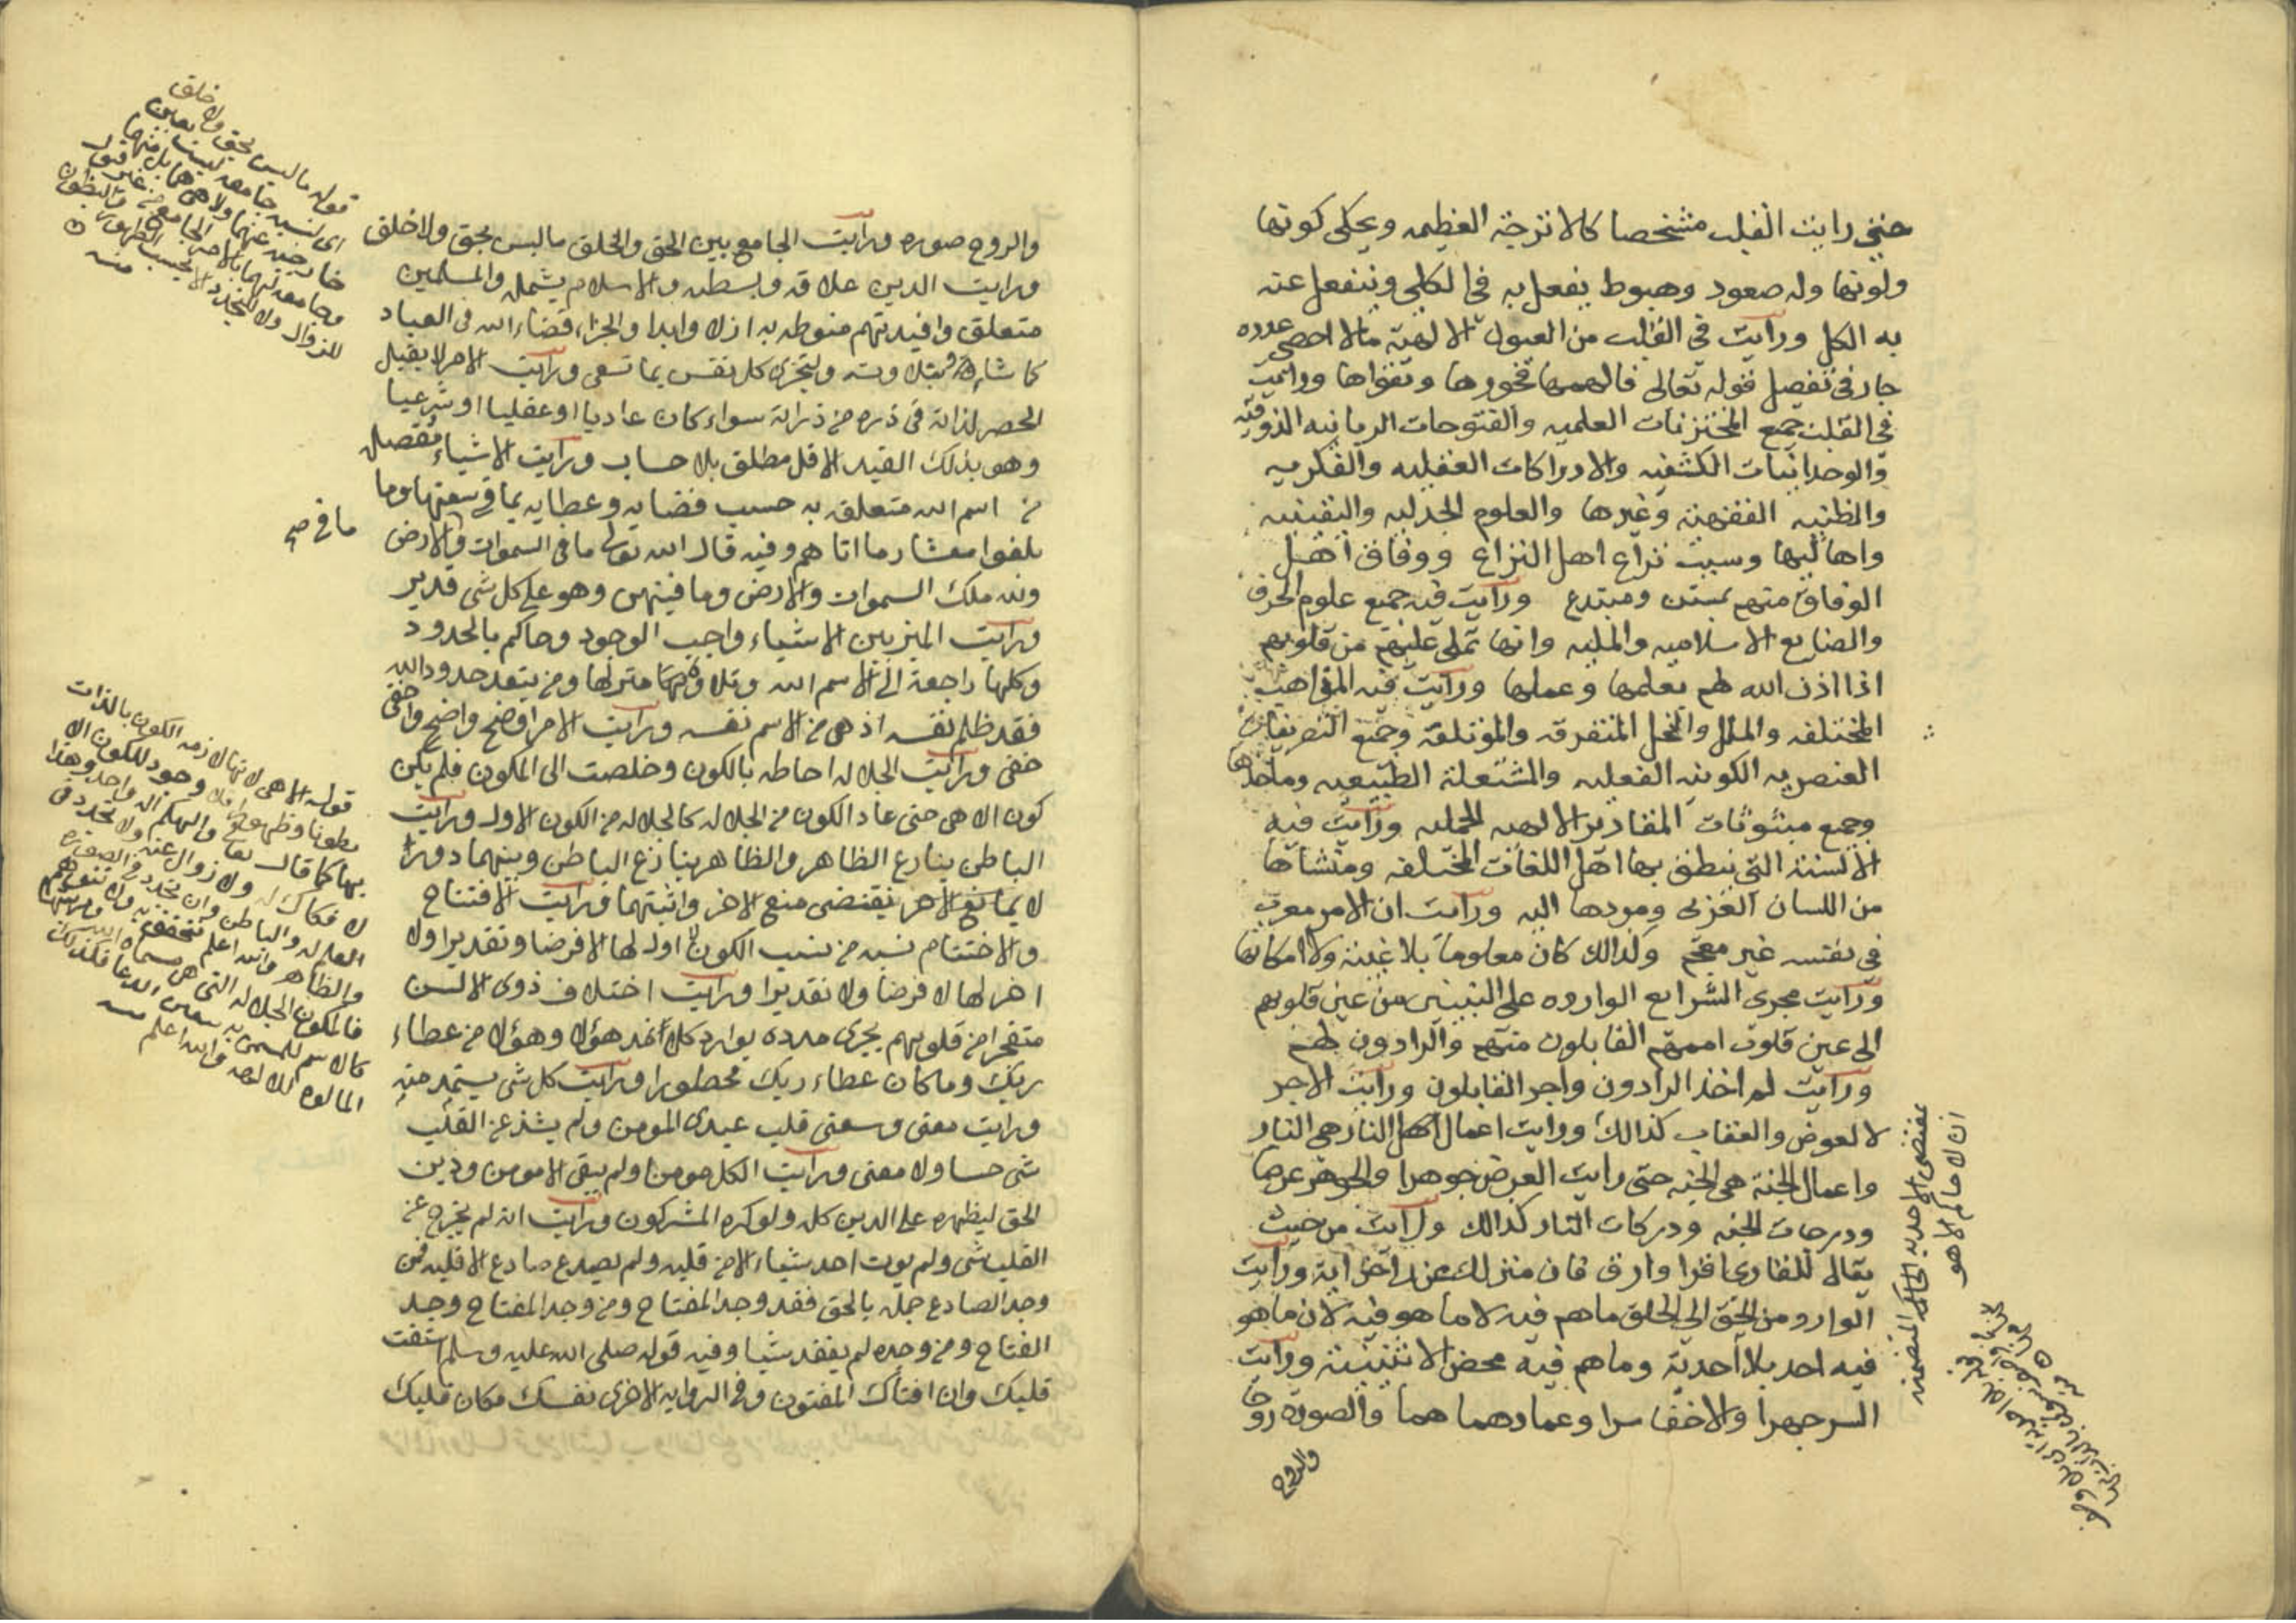 حتى رايت القلب مشخصا كالاترجة العظيمه ويحكى كونها
ولونها وله صعود وهبوط يفعل به في الكل وينفعل عنه
به الكل ورايت في القلب من العيون الالهية مالا احصى عدده
جار في تفصيل قوله تعالى فالهمها فجورها وتقواها ورايت
في القلب جميع المختزنات العلميه والفتوحات الربانيه الذوقيه
والوجدانيات الكشفيه والادراكات العقليه والفكريه
والظنيه الفقهية وغيرها والعلوم الجدليه واليقينيه
واهاليها وسبب نزاع اهل النزاع ووفاق اهل
الوفاق منهم بمستن ومبتدع ورايت فيه جميع علوم الحرف
والصنايع الاسلاميه والمليه وانها تملى عليهم من قلوبهم
اذا اذن الله لهم بعلمها وعملها ورايت فيه المذاهب
المختلفه والملل والنحل المتفرقه والمؤتلفة وجميع التصريفات
العنصريه الكونيه الفعليه والمشتعلة الطبيعيه وماخذها
وجميع مبثوثات المقادير الالهيه الجمليه ورايت فيه
الالسنة التي ينطق بها اهل اللغات المختلفه ومنشاها
من اللسان العربى ومردها اليه ورايت ان الامر معرب
في نفسه غير معجم ولذالك كان معلوما بلا غيبة ولا امكانها
ورايت مجرى الشرايع الوارده على النبيين من عين قلوبهم
الى عين قلوب اممهم القابلون منهم والرادون لهم
ورايت لم اخذ الرادون واجر القابلون ورايت الاجر
لا لعوض والعقاب كذالك ورايت اعمال اهل النار هي النار
واعمال الجنة هي الجنه حتى رايت العرض جوهرا والجوهر عرضا
ودرجات الجنه ودركات النار كذالك ورايت من حيث
يقال للقارى اقرا وارق فان منزلك عند آخر آية ورايت
الوارد من الحق الى الخلق ما هم فيه لا ما هو فيه لان ما هو
فيه احد بلا احدية وما هم فيه محض الاثنينية ورايت
السر جهرا والاخفا سرا وعمادهما هما والصورة روحا
والروح
بمقتضى الاحديه الحاكمه المتضمنة
ان لا حاكم الا هو
والروح صوره ورايت الجامع بين الحق والخلق ما ليس بحق ولا خلق
ورايت الدين علاقه وبسطه والاسلام يشمله والمسلمين
متعلق وافيدتهم منوطه به ازلا وابدا والجزاء قضاء الله في العباد
كما شاءه قبلا وبته ولتجزى كل نفس بما تسعى ورايت الامر لا يقبل
الحصر لذاته في ذره من ذراته سواء كان عاديا او عقليا او شرعيا
وهو بذلك القيد الاقل مطلق بلا حساب ورايت الاشياء مفصل
من اسم الله متعلق به حسب قضايه وعطايه بما في سعتها وما
بلغوا معشار ما اتاهم وفيه قال الله تعالى ما في السموات والارض
ولله ملك السموات والارض وما فيهن وهو على كل شى قدير
ورايت الميز بين الاشياء واجب الوجود وحاكم بالحدود
وكلها راجعة الى الاسم الله وتلاوتها منزلها ومن يتعد حدود الله
فقد ظلم نفسه اذ هى من الاسم نفسه ورايت الامر اوضح واضح واخفى
خفى ورايت الجلاله احاطه بالكون وخلصت الى المكون فلم يكن
كون الا هى حتى عاد الكون من الجلاله كالجلاله من الكون الاول ورايت
الباطن ينازع الظاهر والظاهر ينازع الباطن وبينهما دورا
لا يمانع الاخر يقتضى منع الاخر واثبتهما ورايت الافتتاح
والاختتام نسبه من نسب الكون لا اول لها الا فرضا وتقديرا ولا
اخر لها لا فرضا ولا تقديرا ورايت اختلاف ذوى الالسن
متفجرا من قلوبهم يجرى مدده بوارد كلا نمد هؤلا وهؤلا من عطاء
ربك وما كان عطاء ربك محظورا ورايت كل شى يستمد منه
ورايت معنى وسعنى قلب عبدى المومن ولم يشذ عن القلب
شى حسا ولا معنى ورايت الكل مومنا ولم يبقى الا مومن ودين
الحق ليظهره على الدين كله ولو كره المشركون ورايت انه لم يخرج عن
القلب شى ولم يوت احد شياء الا من قلبه ولم يصدع صادع الا قلبه فمن
وجد الصادع جمله بالحق فقد وجد المفتاح ومن وجد المفتاح وجد
الفتاح ومن وجده لم يفقد شيا وفيه قوله صلى الله عليه وسلم استفت
قلبك وان افتاك المفتون وفي الروايه الاخرى نفسك مكان قلبك
قوله ما ليس بحق ولا خلق
اى نسبه جامعه ليست بعاين
خارجه عنهما ولا هى هما بل
وجامعه لهما بالامر الجامع من غير قبول
للزوال ولا للتجدد الا بحسب الظهور والبطون
منه
ما في صح
قوله الا هى لانها لازمه الكون بالذات
بطونا وظهورا فلا وجود للكون الا
بها كما قال تعالى والهكم اله واحد وهذا
لا فكاك له ولا زوال عنه ولا تجدد في
والظاهر والله اعلم
كالاسم للمسمى به
المالوه للالوهه والله اعلم منه